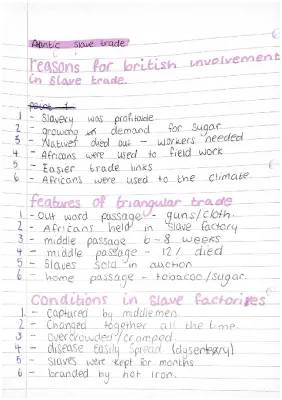 Atlantic slave trade
reasons for british involvement
in slave trade.
point 1
1 - Slavery was profitable
2 - growing in demand for sugar
3 - Natives died out - workers needed
4 - Africans were used to field work
5 - Easier trade links
6 - Africans were used to the climate
features of triangular trade
1 - Out ward passage - guns/cloth.
2 - Africans held in slave factory
3 - middle passage 6-8 weeks
4 - middle passage - 12% died
5 - Slaves sold in auction
6 - home passage - tobacoo/sugar.
Conditions in slave factories
1 - Captured by middlemen.
2 - Changed together all the time.
3 - overcrowded/cramped.
4 - disease easily spread (dysentery)
5 - slaves were kept for months
6 - branded by hot iron.